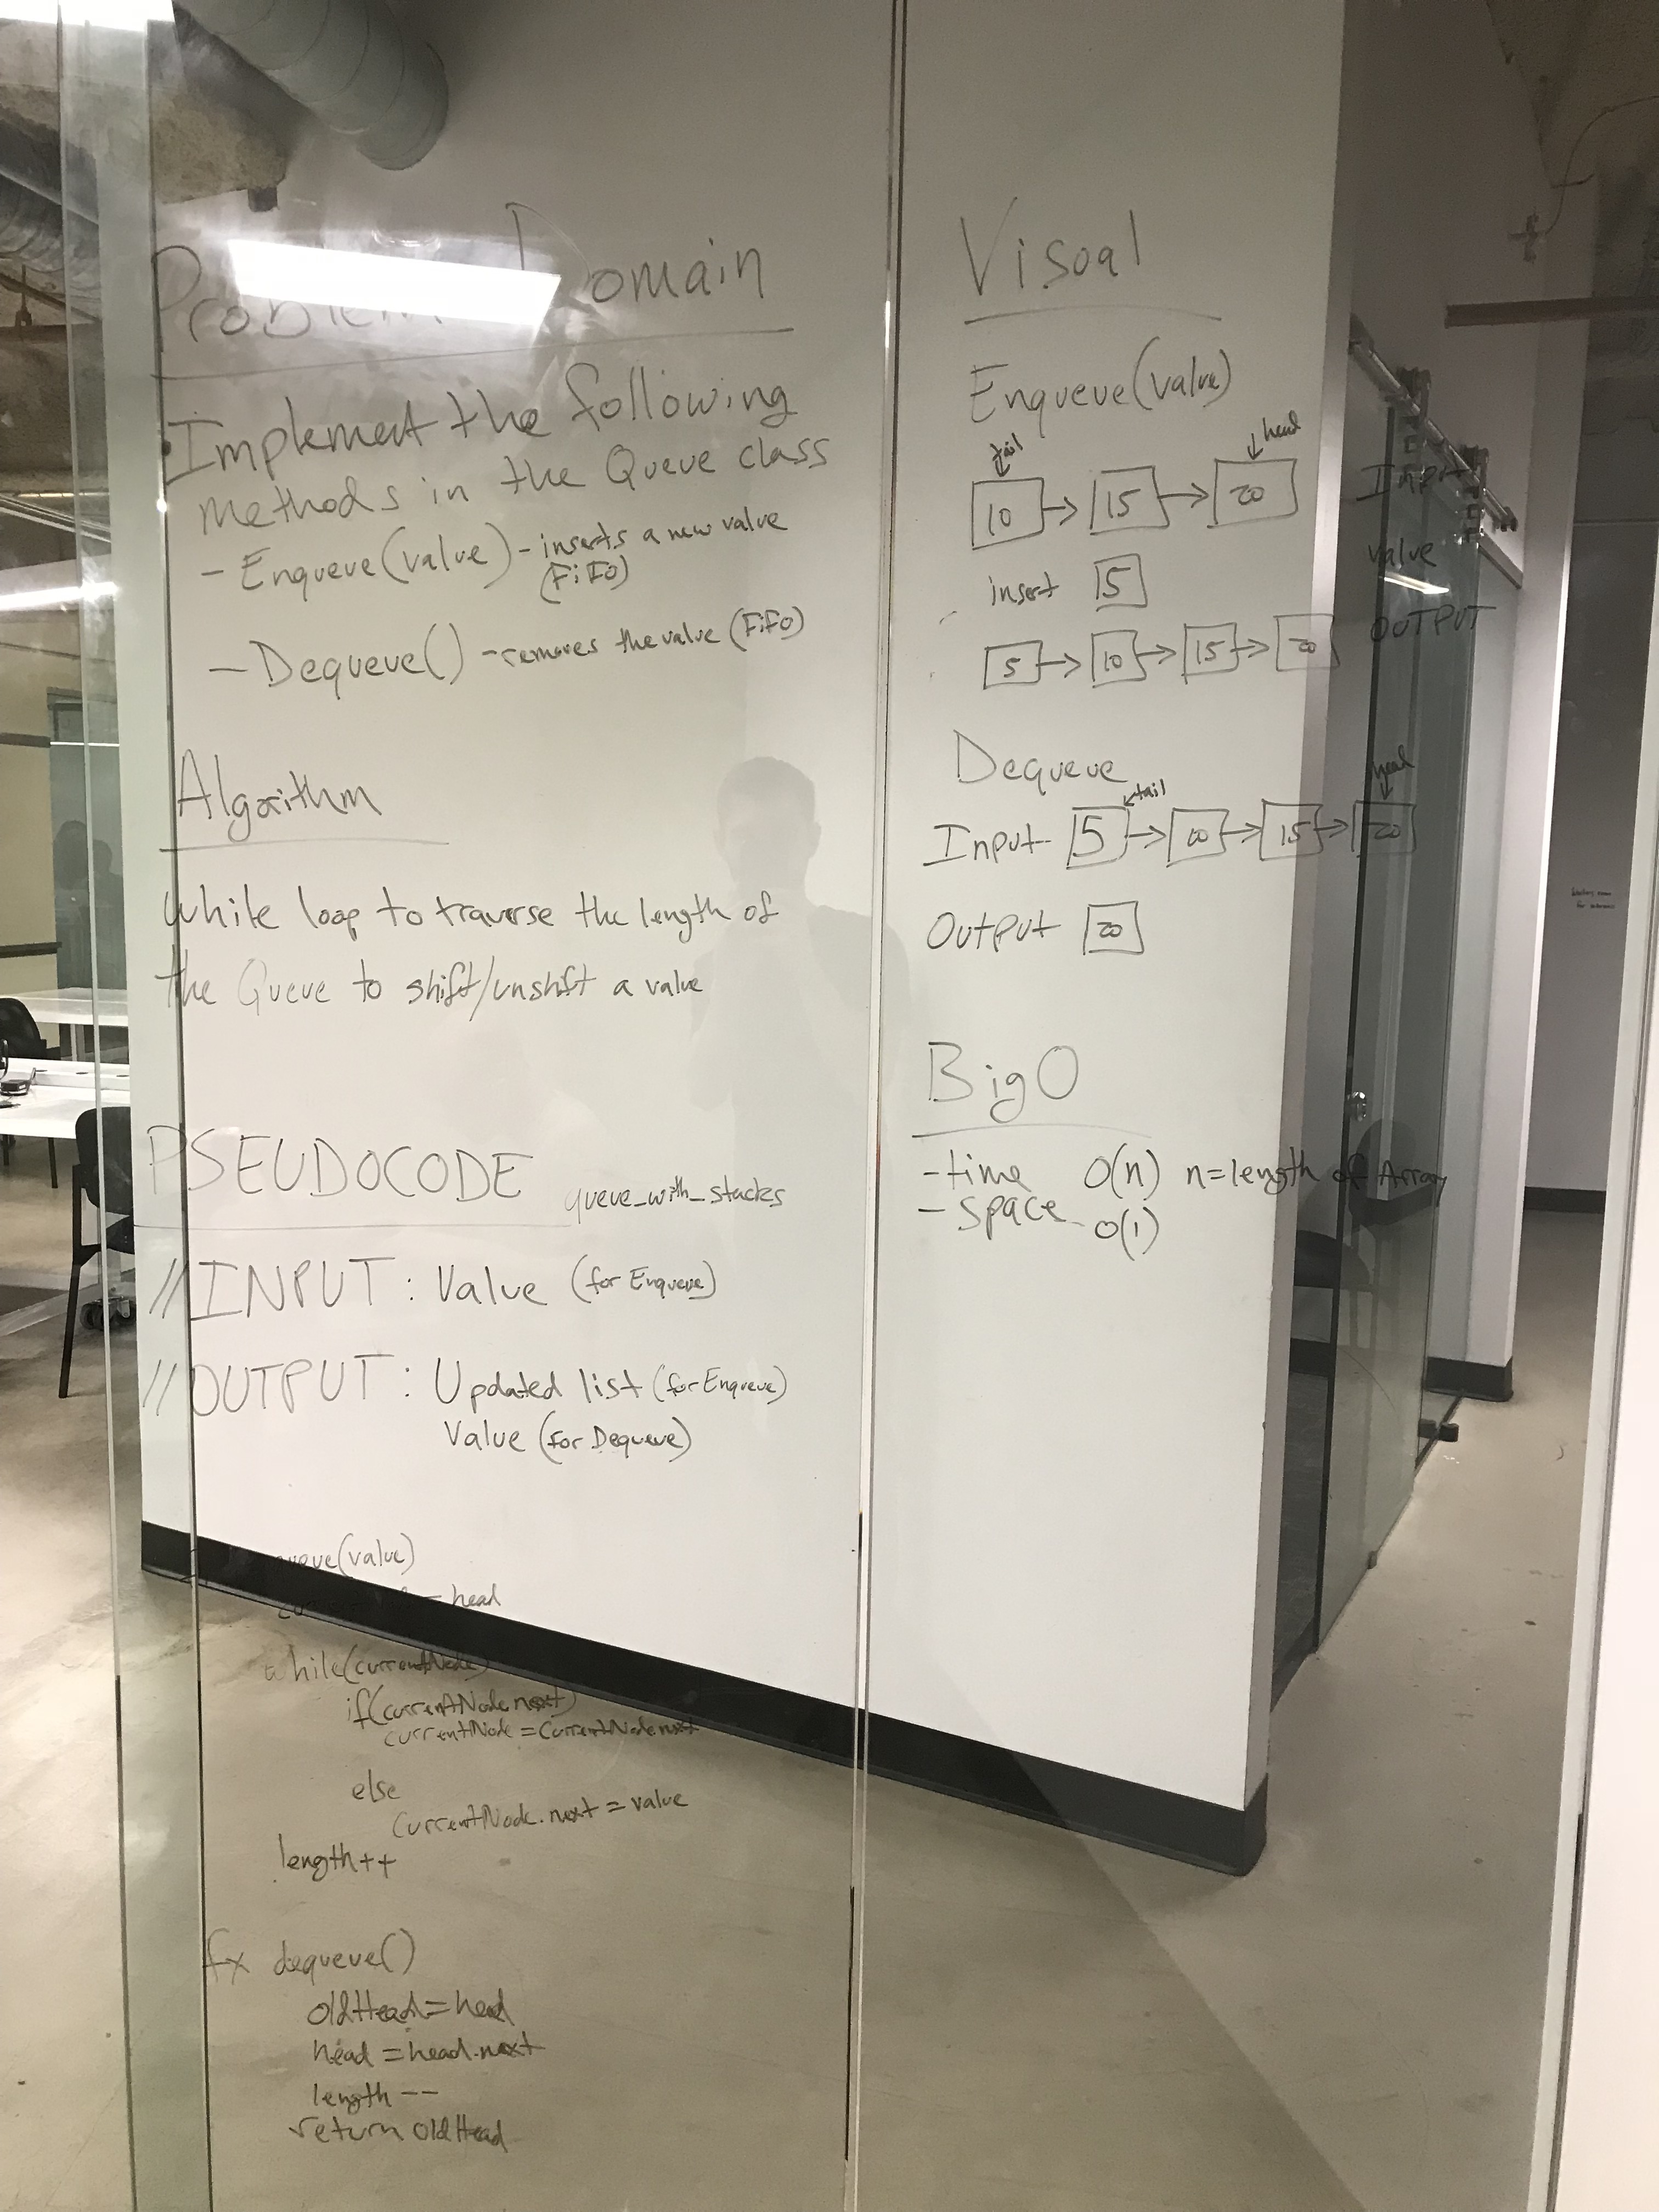 Problem Domain
Implement the following
methods in the Queue class
- Enqueue(value) - inserts a new value
(FiFo)
- Dequeue() - removes the value (FiFo)
Algorithm
while loop to traverse the length of
the Queue to shift/unshift a value
PSEUDOCODE queue_with_stacks
//INPUT: Value (for Enqueue)
//OUTPUT: Updated list (for Enqueue)
Value (for Dequeue)
(value)
= head
while(currentNode)
if(currentNode.next)
currentNode = currentNode.next
else
currentNode.next = value
length++
fx dequeue()
oldHead = head
head = head.next
length--
return oldHead
Visoal
Enqueue(value)
tail head
10 → 15 → 20
insert 5
5 → 10 → 15 → 20
Input
value
OUTPUT
Dequeue
tail head
Input 5 → 10 → 15 → 20
Output 20
Big O
- time O(n) n = length of Array
- space O(1)